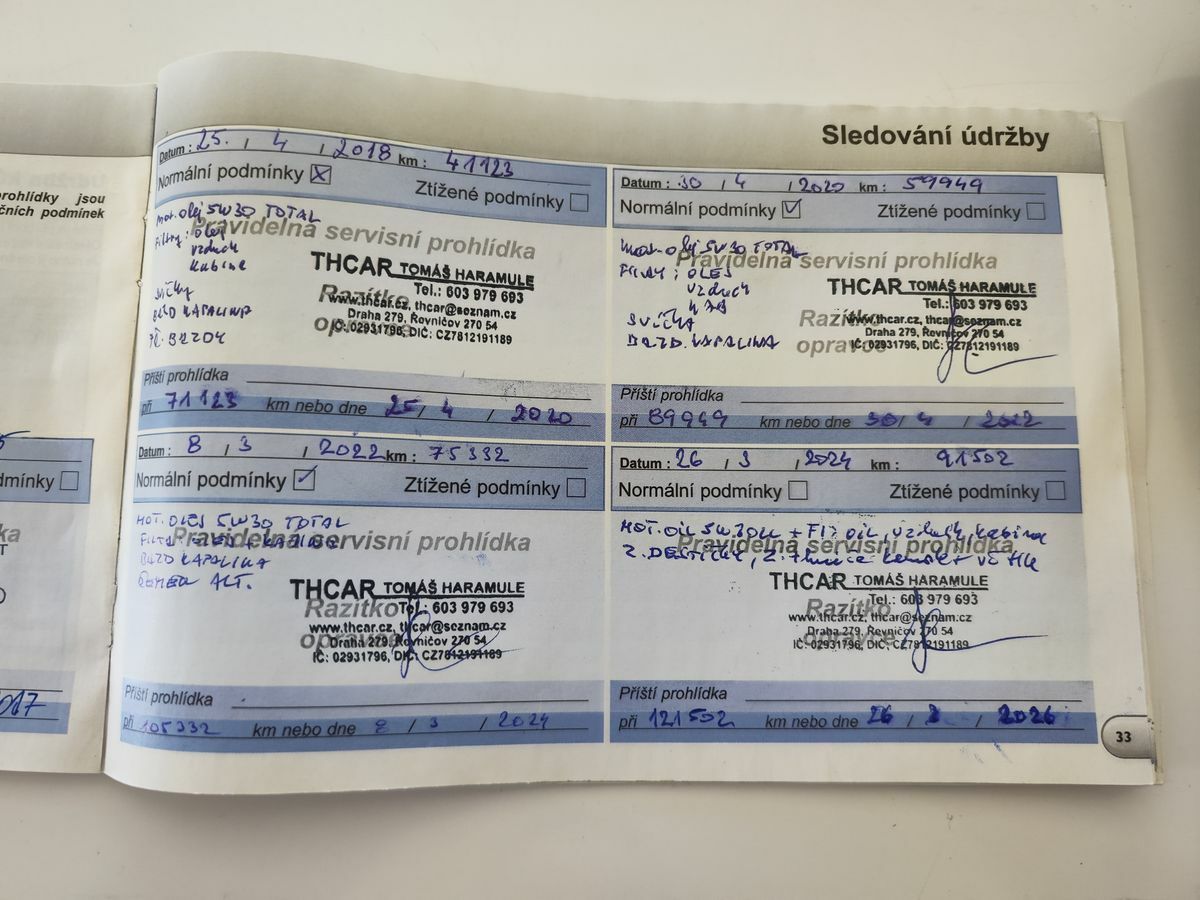 Sledování údržby
rohlídky jsou
čních podmínek
dmínky
Datum : 25. / 4 / 2018 km : 41123
Normální podmínky X Ztížené podmínky
Mot. olej 5W30 TOTAL
Pravidelná servisní prohlídka
Filtry : olej
vzduch
kabina
svíčky
BRZD KAPALINA
PŘ. BRZDY
Razítko
opravce
THCAR TOMÁŠ HARAMULE
Tel.: 603 979 693
www.thcar.cz, thcar@seznam.cz
Draha 279, Řevničov 270 54
IČ: 02931796, DIČ: CZ7812191189
Příští prohlídka
při 71123 km nebo dne 25 / 4 / 2020
Datum : 30 / 4 / 2020 km : 59949
Normální podmínky Ztížené podmínky
Mot. olej 5W30 TOTAL
Pravidelná servisní prohlídka
FILTRY : OLEJ
vzduch
SVÍČKY
BRZD. KAPALINA
Razítko
opravce
THCAR TOMÁŠ HARAMULE
Tel.: 603 979 693
www.thcar.cz, thcar@seznam.cz
Draha 279, Řevničov 270 54
IČ: 02931796, DIČ: CZ7812191189
Příští prohlídka
při 89949 km nebo dne 30 / 4 / 2022
Datum : 8 / 3 / 2022 km : 75332
Normální podmínky Ztížené podmínky
MOT. OLEJ 5W30 TOTAL
Pravidelná servisní prohlídka
BRZD KAPALINA
ŘEMEN ALT.
Razítko
opravce
THCAR TOMÁŠ HARAMULE
Tel.: 603 979 693
www.thcar.cz, thcar@seznam.cz
Draha 279, Řevničov 270 54
IČ: 02931796, DIČ: CZ7812191189
Příští prohlídka
při 105332 km nebo dne 8 / 3 / 2024
Datum : 26 / 3 / 2024 km : 91502
Normální podmínky Ztížené podmínky
MOT. OIL 5W30 + Fi oil, vzduch, kabina
Pravidelná servisní prohlídka
Z. DESTIČKY, Z.
Razítko
opravce
THCAR TOMÁŠ HARAMULE
Tel.: 603 979 693
www.thcar.cz, thcar@seznam.cz
Draha 279, Řevničov 270 54
IČ: 02931796, DIČ: CZ7812191189
Příští prohlídka
při 121502 km nebo dne 26 / 3 / 2026
33